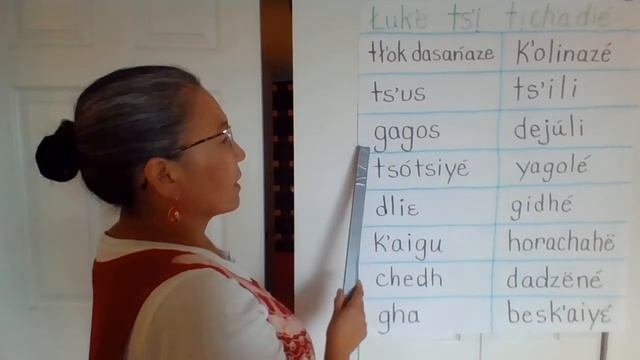 Łuk'ë ts'ı̨ tı̨ch'adıé
tł'ok dasańaze K'olınazé
ts'us ts'ılı
gagos dejúlı
tsótsıyé yagolé
dlıɛ gıdhé
k'aıgu horachahë
chedh dadzëné
gha besk'aıyé